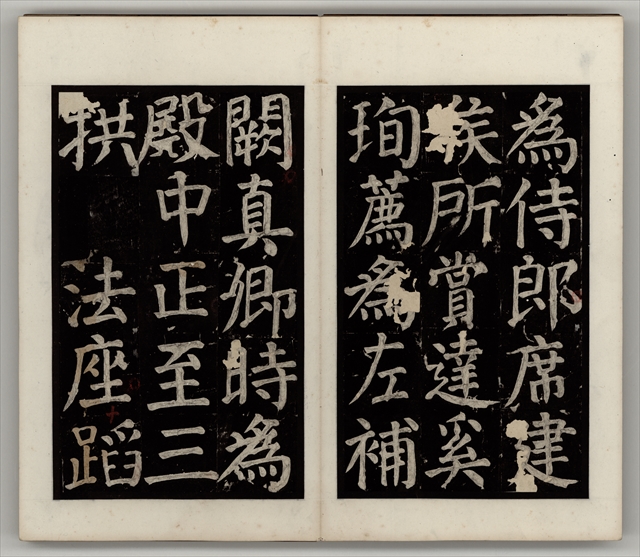 為侍郎席建
侯所賞達奚
珣薦為左補
闕真卿時為
殿中正至三
拱　法座蹈